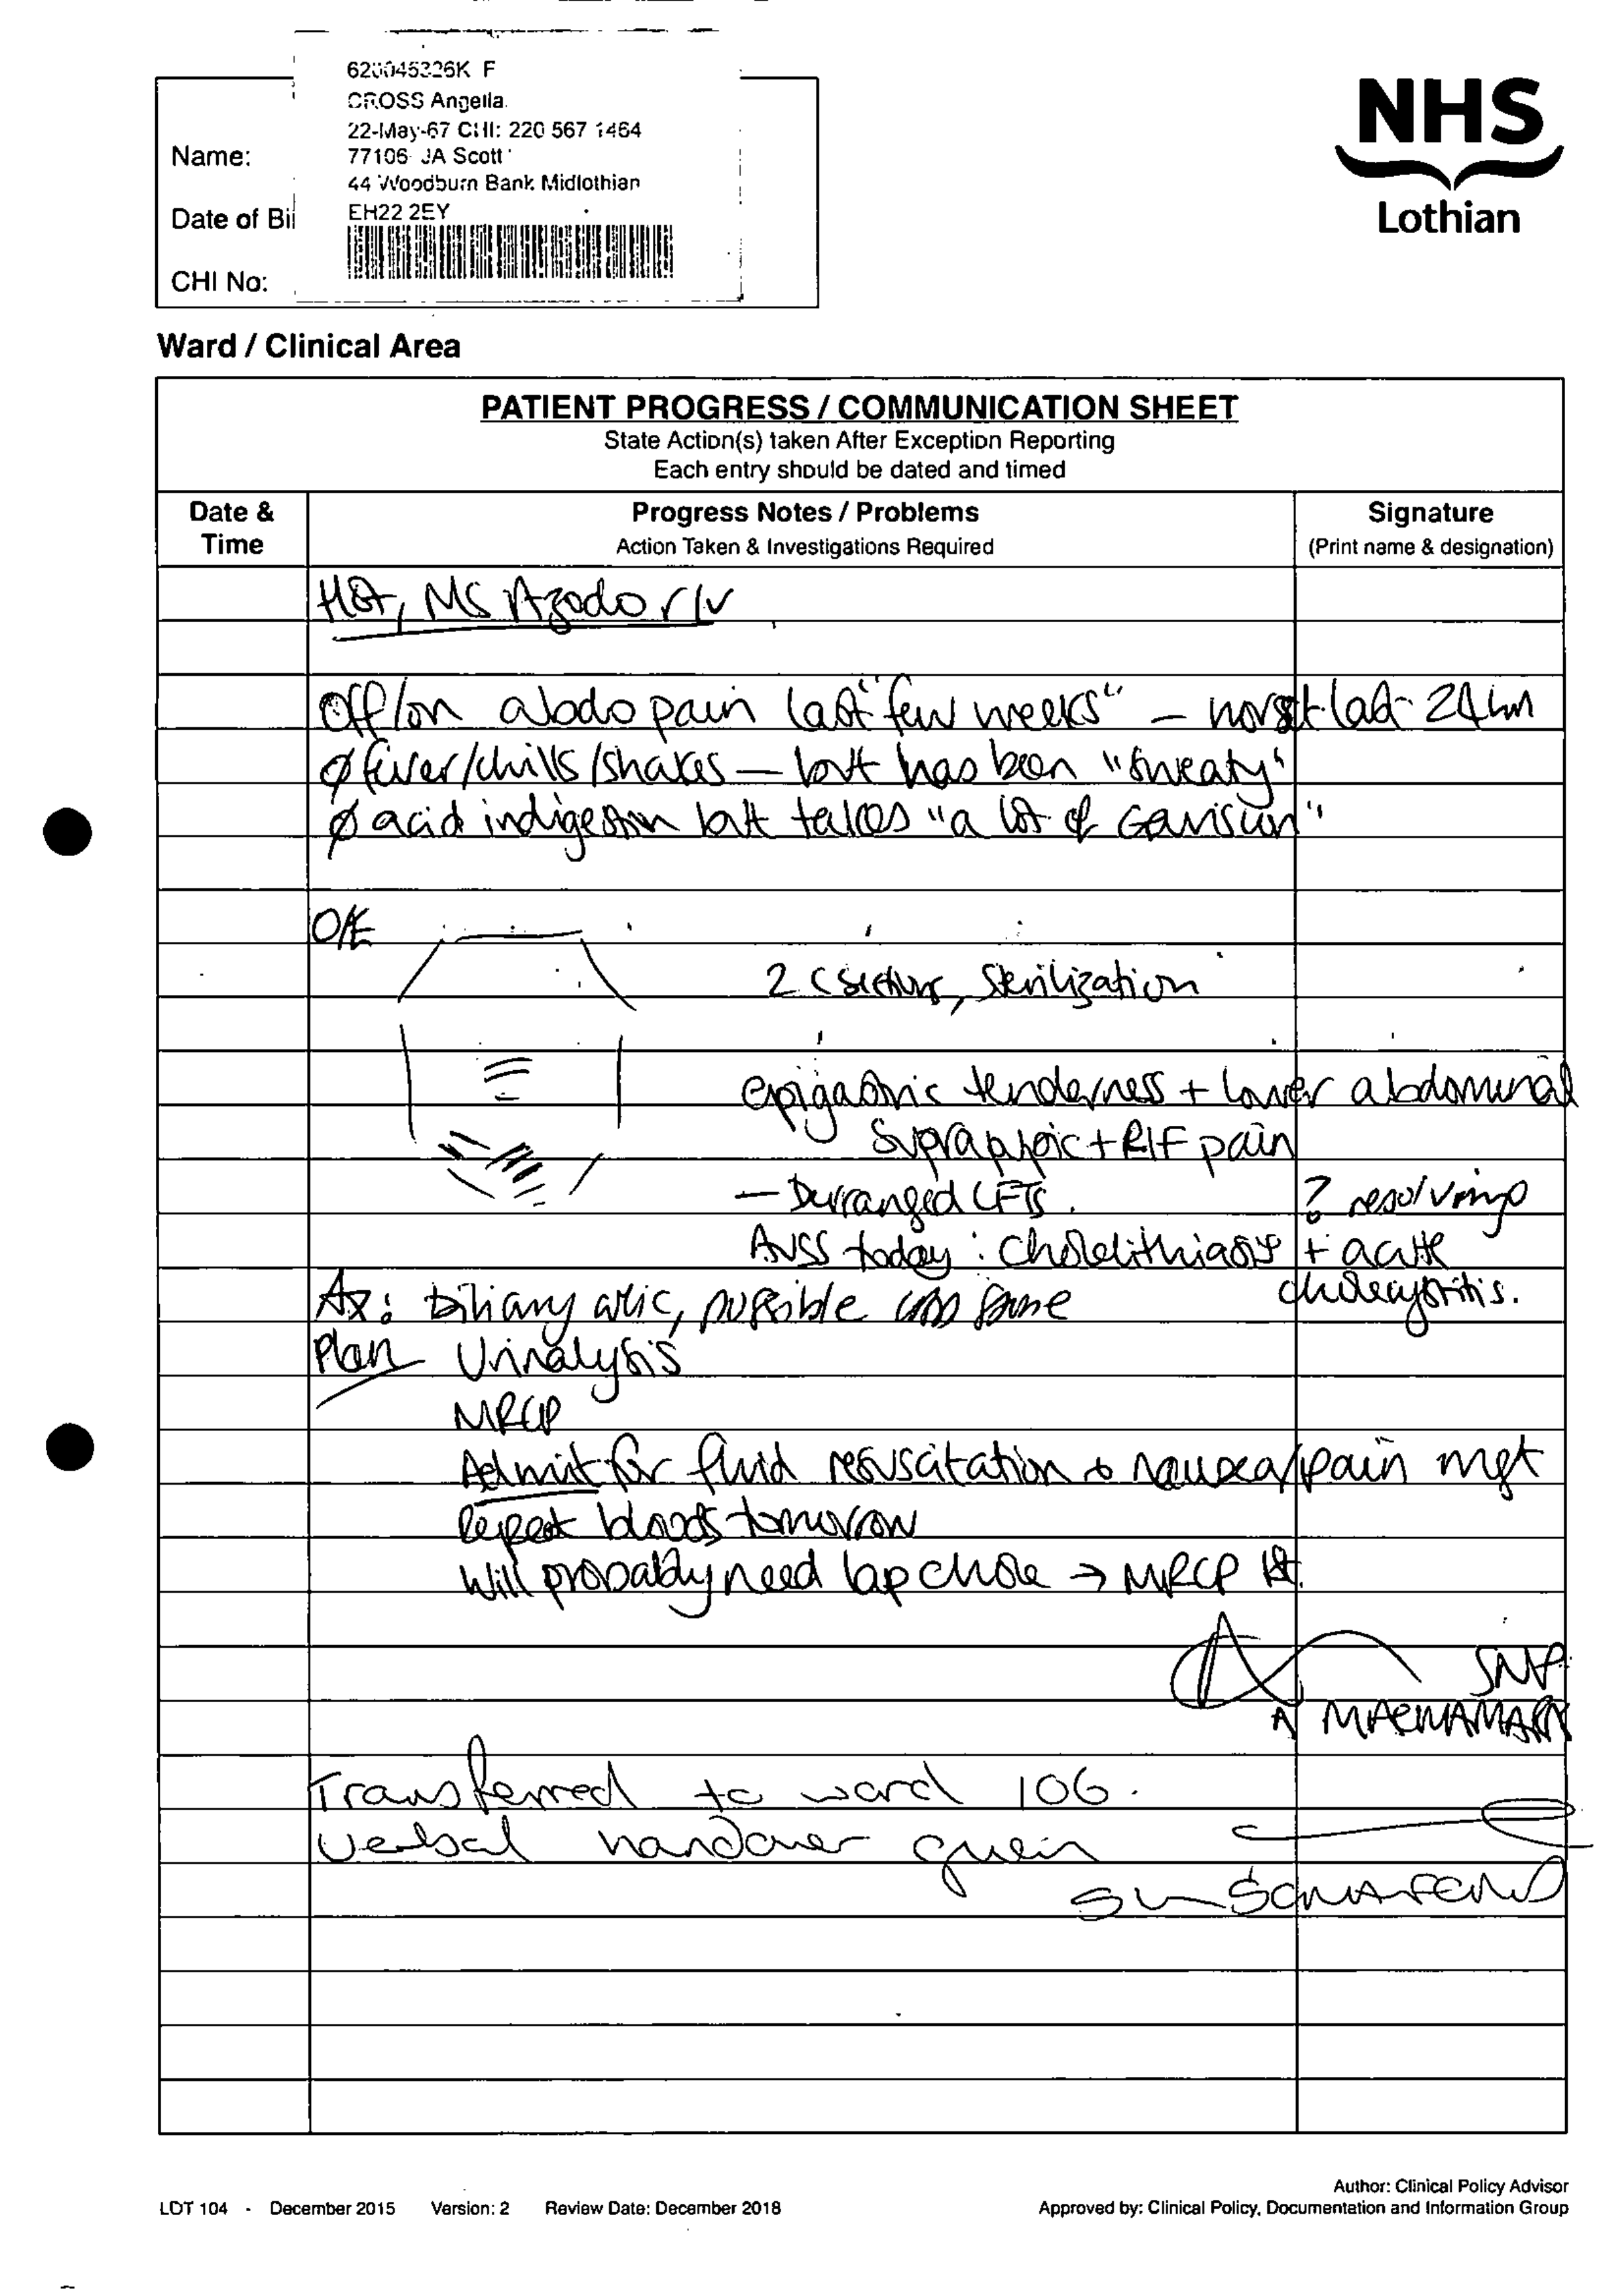 620045326K F
CROSS Angella
22-May-67 CHI: 220 567 1464
77106 JA Scott
44 Woodburn Bank Midlothian
EH22 2EY
Name:
Date of Bi
CHI No:
NHS
Lothian
Ward / Clinical Area
PATIENT PROGRESS / COMMUNICATION SHEET
State Action(s) taken After Exception Reporting
Each entry should be dated and timed
Date & Time
Progress Notes / Problems
Action Taken & Investigations Required
Signature
(Print name & designation)
MS Azodo r/v
Off/on abdo pain last "few weeks" – worst last 24hrs
ø fever/chills/shakes — but has been "sweaty"
ø acid indigestion but takes "a lot of Gaviscon"
O/E
2 C sections, Sterilization
epigastric tenderness + lower abdominal
Suprapubic + RIF pain
— Derranged LFTs. ? resolving
AUSS today: Cholelithiasis + acute
cholecystitis.
Ax: biliary colic, possible CBD stone
Plan Urinalysis
MRCP
Admit for fluid resuscitation + nausea/pain mgt
Repeat bloods tomorrow
Will probably need lap chole → MRCP 1st.
SNP
A MACNAMARA
Transferred to ward 106.
verbal handover given
LOT 104 - December 2015 Version: 2 Review Date: December 2018
Author: Clinical Policy Advisor
Approved by: Clinical Policy, Documentation and Information Group